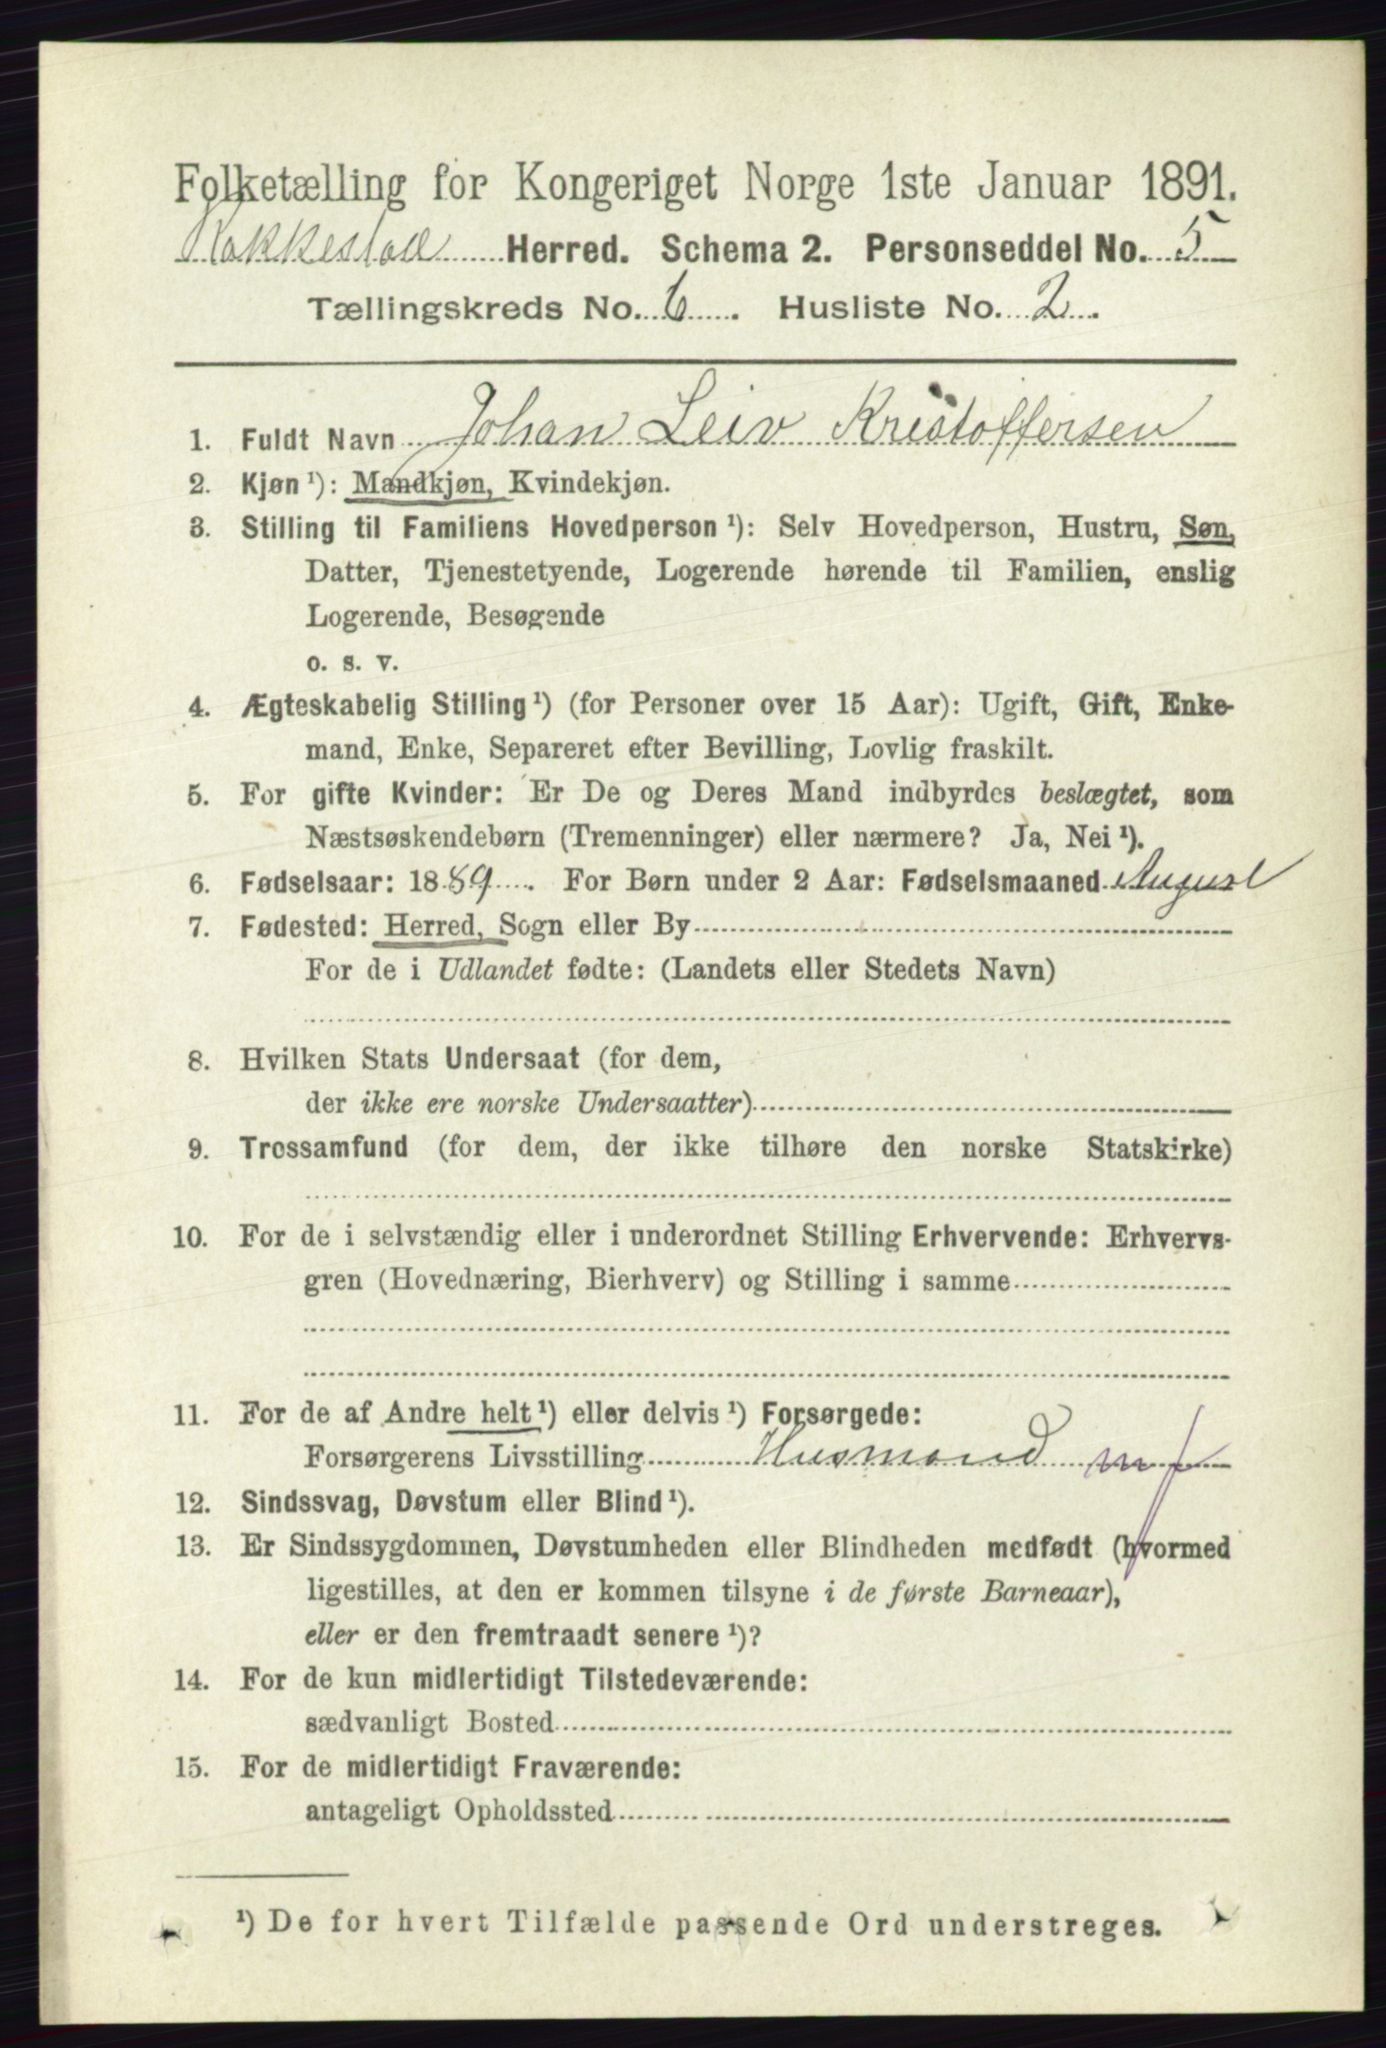 Folketælling for Kongeriget Norge 1ste Januar 1891.
Rakkestad Herred. Schema 2. Personseddel No. 5
Tællingskreds No. 6. Husliste No. 2.
1. Fuldt Navn Johan Leiv Kristoffersen
2. Kjøn¹): Mandkjøn, Kvindekjøn.
3. Stilling til Familiens Hovedperson¹): Selv Hovedperson, Hustru, Søn,
Datter, Tjenestetyende, Logerende hørende til Familien, enslig
Logerende, Besøgende
o. s. v.
4. Ægteskabelig Stilling¹) (for Personer over 15 Aar): Ugift, Gift, Enke-
mand, Enke, Separeret efter Bevilling, Lovlig fraskilt.
5. For gifte Kvinder: Er De og Deres Mand indbyrdes beslægtet, som
Næstsøskendebørn (Tremenninger) eller nærmere? Ja, Nei¹).
6. Fødselsaar: 1889. For Børn under 2 Aar: Fødselsmaaned August
7. Fødested: Herred, Sogn eller By
For de i Udlandet fødte: (Landets eller Stedets Navn)
8. Hvilken Stats Undersaat (for dem,
der ikke ere norske Undersaatter)
9. Trossamfund (for dem, der ikke tilhøre den norske Statskirke)
10. For de i selvstændig eller i underordnet Stilling Erhvervende: Erhvervs-
gren (Hovednæring, Bierhverv) og Stilling i samme
11. For de af Andre helt¹) eller delvis¹) Forsørgede:
Forsørgerens Livsstilling Husmand mf
12. Sindssvag, Døvstum eller Blind¹).
13. Er Sindssygdommen, Døvstumheden eller Blindheden medfødt (hvormed
ligestilles, at den er kommen tilsyne i de første Barneaar),
eller er den fremtraadt senere¹)?
14. For de kun midlertidigt Tilstedeværende:
sædvanligt Bosted
15. For de midlertidigt Fraværende:
antageligt Opholdssted
¹) De for hvert Tilfælde passende Ord understreges.